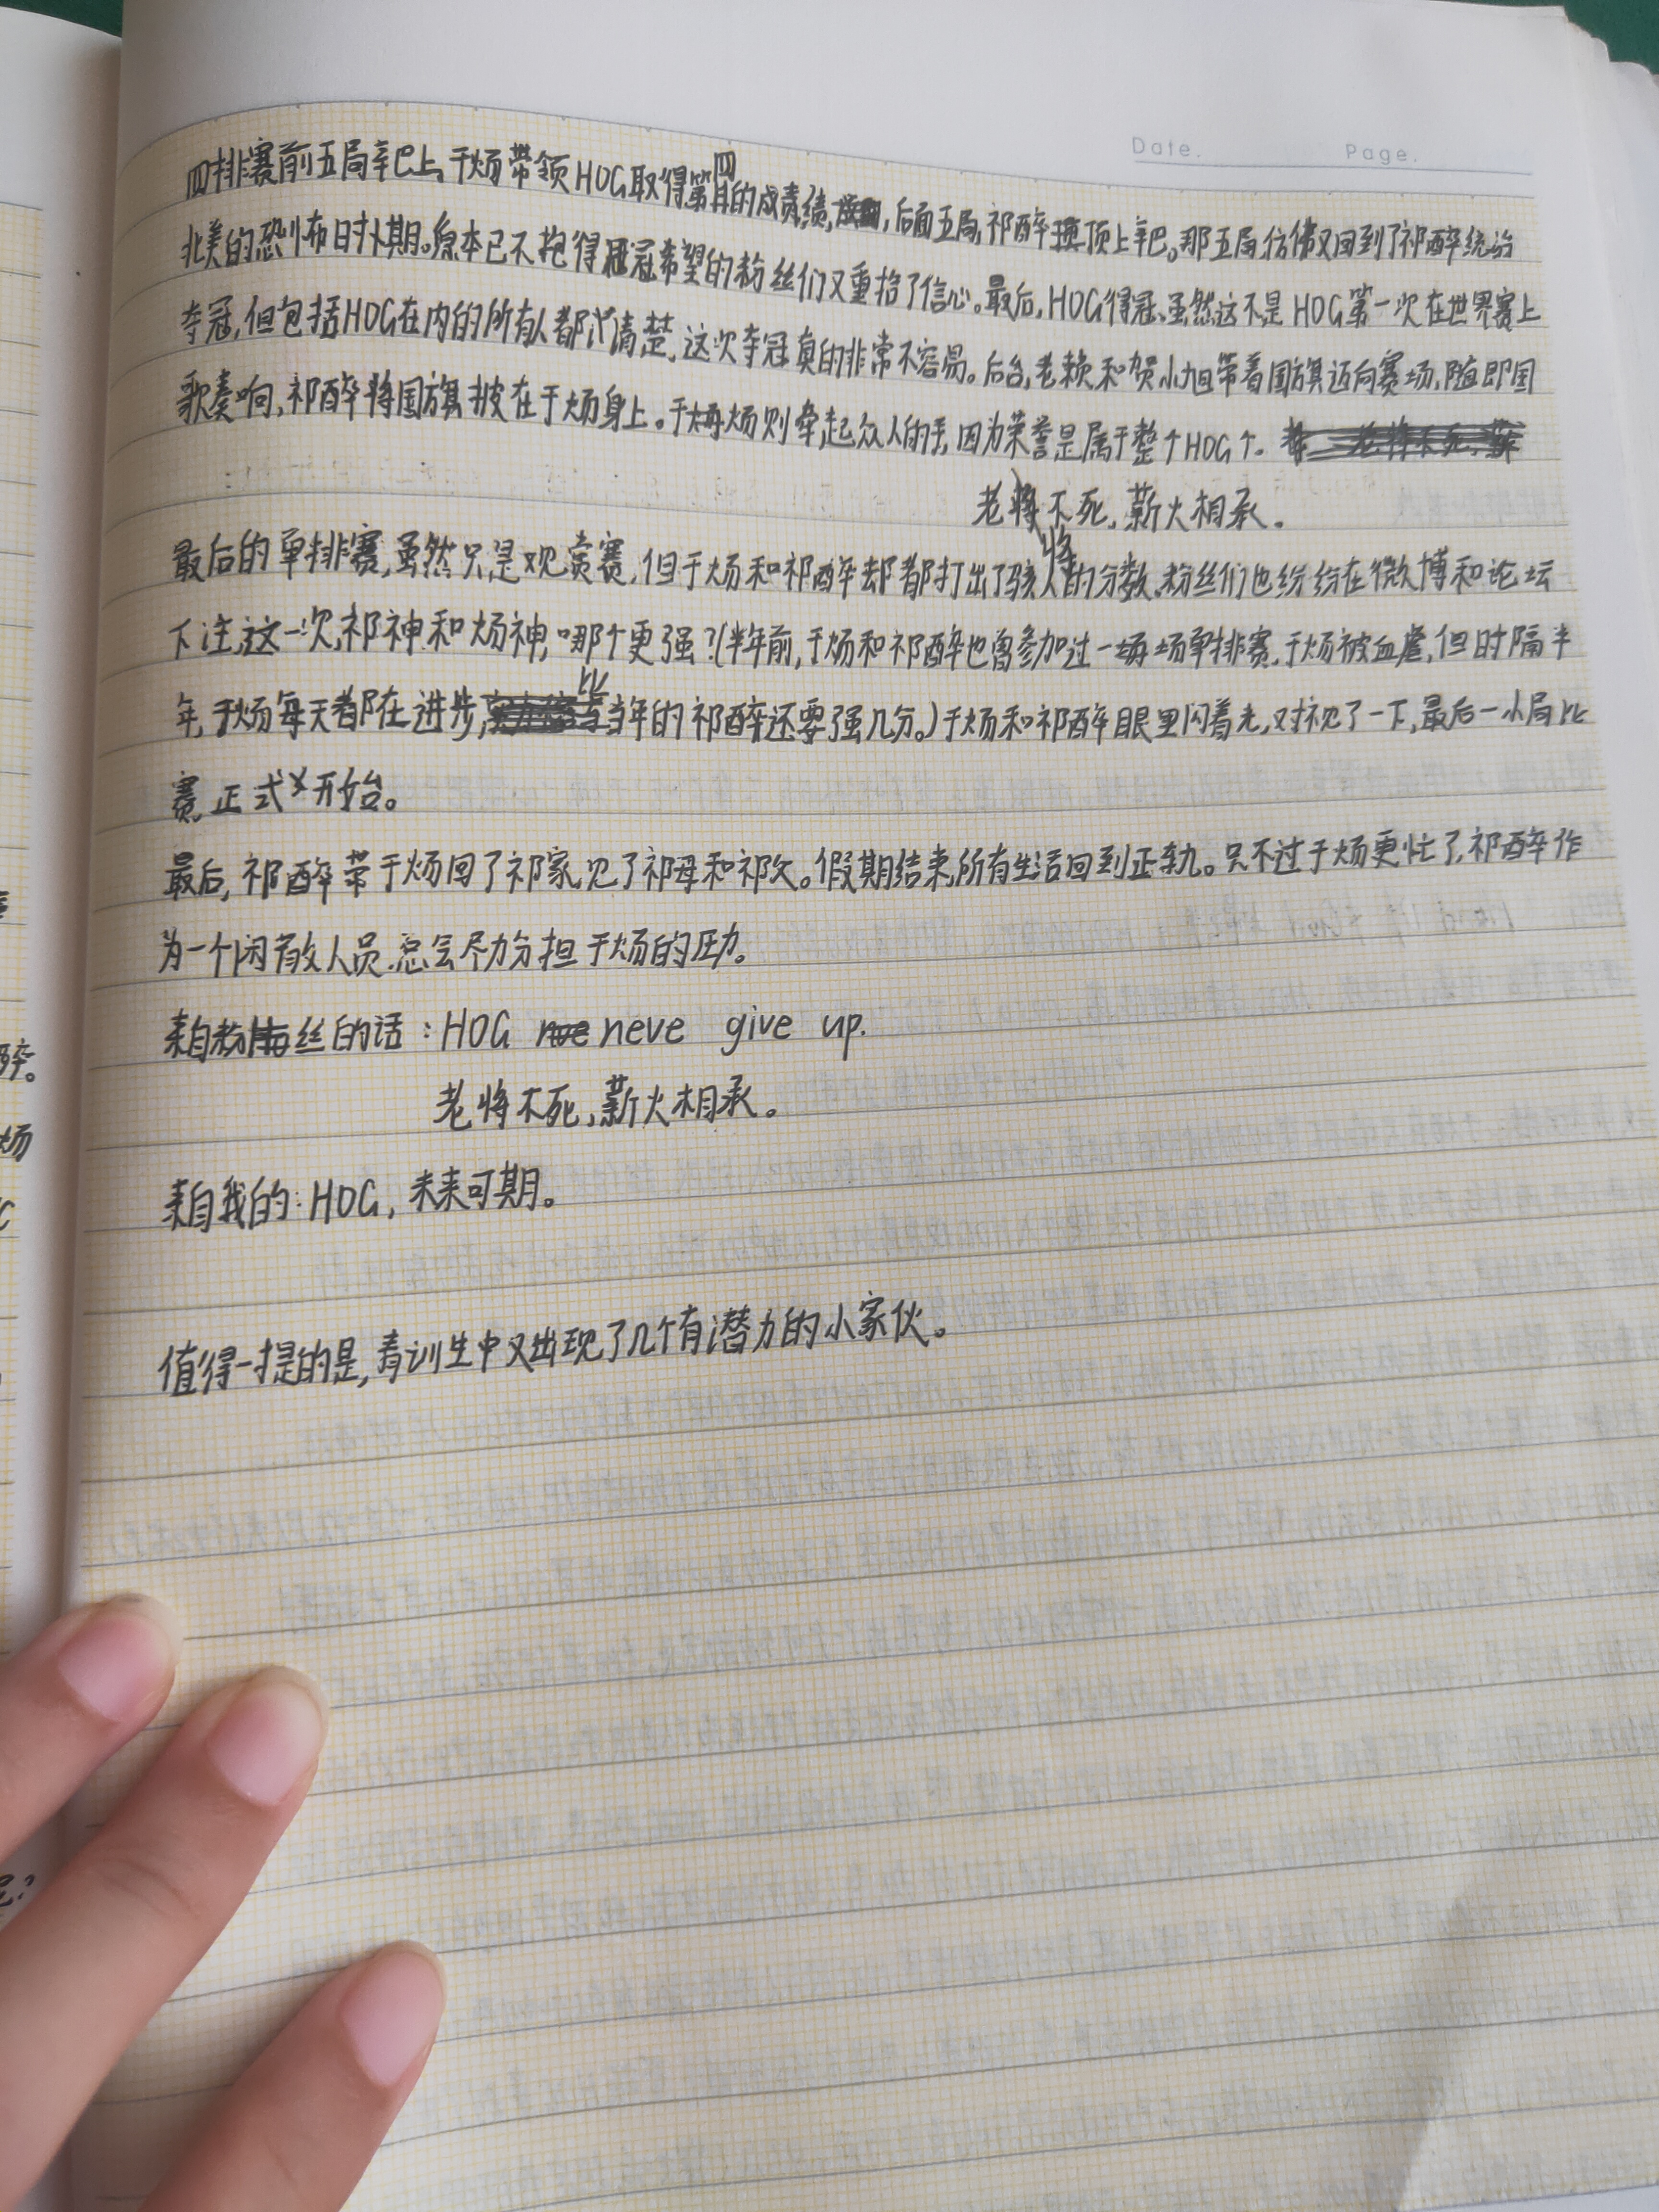 Date.
Page.
四排赛前五局辛巴上,于炀带领HOG取得第四的成绩,后面五局,祁醉顶上辛巴。那五局仿佛又回到了祁醉统治
北美的恐怖时期。原本已不抱得冠希望的粉丝们又重拾了信心。最后,HOG得冠、虽然这不是HOG第一次在世界赛上
夺冠,但包括HOG在内的所有人都清楚,这次夺冠真的非常不容易。后台,老赖和贺小旭带着国旗迈向赛场,随即国
歌奏响,祁醉将国旗披在于炀身上。于炀则牵起众人的手,因为荣誉是属于整个HOG个。
老将不死,薪火相承。
最后的单排赛,虽然只是观赏赛,但于炀和祁醉却都打出了骇人的分数,粉丝们也纷纷在微博和论坛
下注,这一次,祁神和炀神,哪个更强?(半年前,于炀和祁醉也曾参加过一场单排赛,于炀被血虐,但时隔半
年,于炀每天都在进步,比当年的祁醉还要强几分。)于炀和祁醉眼里闪着光,对视了一下,最后一小局比
赛,正式开始。
最后,祁醉带于炀回了祁家,见了祁母和祁父。假期结束,所有生活回到正轨。只不过于炀更忙了,祁醉作
为一个闲散人员,总会尽力分担于炀的压力。
来自粉丝的话:HOG neve give up.
老将不死,薪火相承。
来自我的:HOG,未来可期。
值得一提的是,青训生中又出现了几个有潜力的小家伙。
醉。
炀